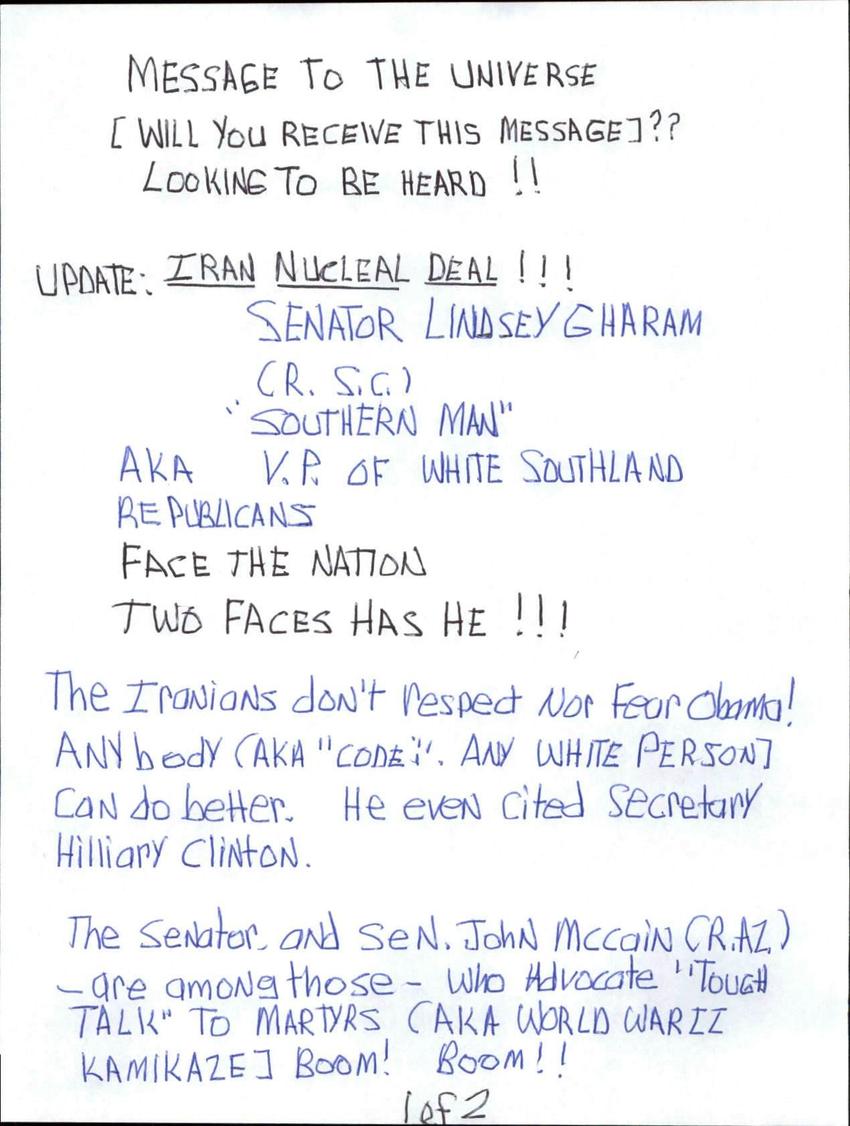 MESSAGE TO THE UNIVERSE
[ WILL YOU RECEIVE THIS MESSAGE]??
LOOKING TO BE HEARD !!
UPDATE: IRAN NUCLEAL DEAL !!!
SENATOR LINDSEY GHARAM
(R. S.C.)
"SOUTHERN MAN"
AKA V.P. OF WHITE SOUTHLAND
REPUBLICANS
FACE THE NATION
TWO FACES HAS HE !!!
The Iranians don't respect Nor Fear Obama!
ANYbody (AKA "CODE": ANY WHITE PERSON]
CAN do better. He even cited Secretary
Hilliary Clinton.
The Senator and Sen. John McCain (R.AZ.)
- are among those - who Advocate "TOUGH
TALK" TO MARTYRS (AKA WORLD WAR II
KAMIKAZE] BOOM! BOOM!!
1 of 2